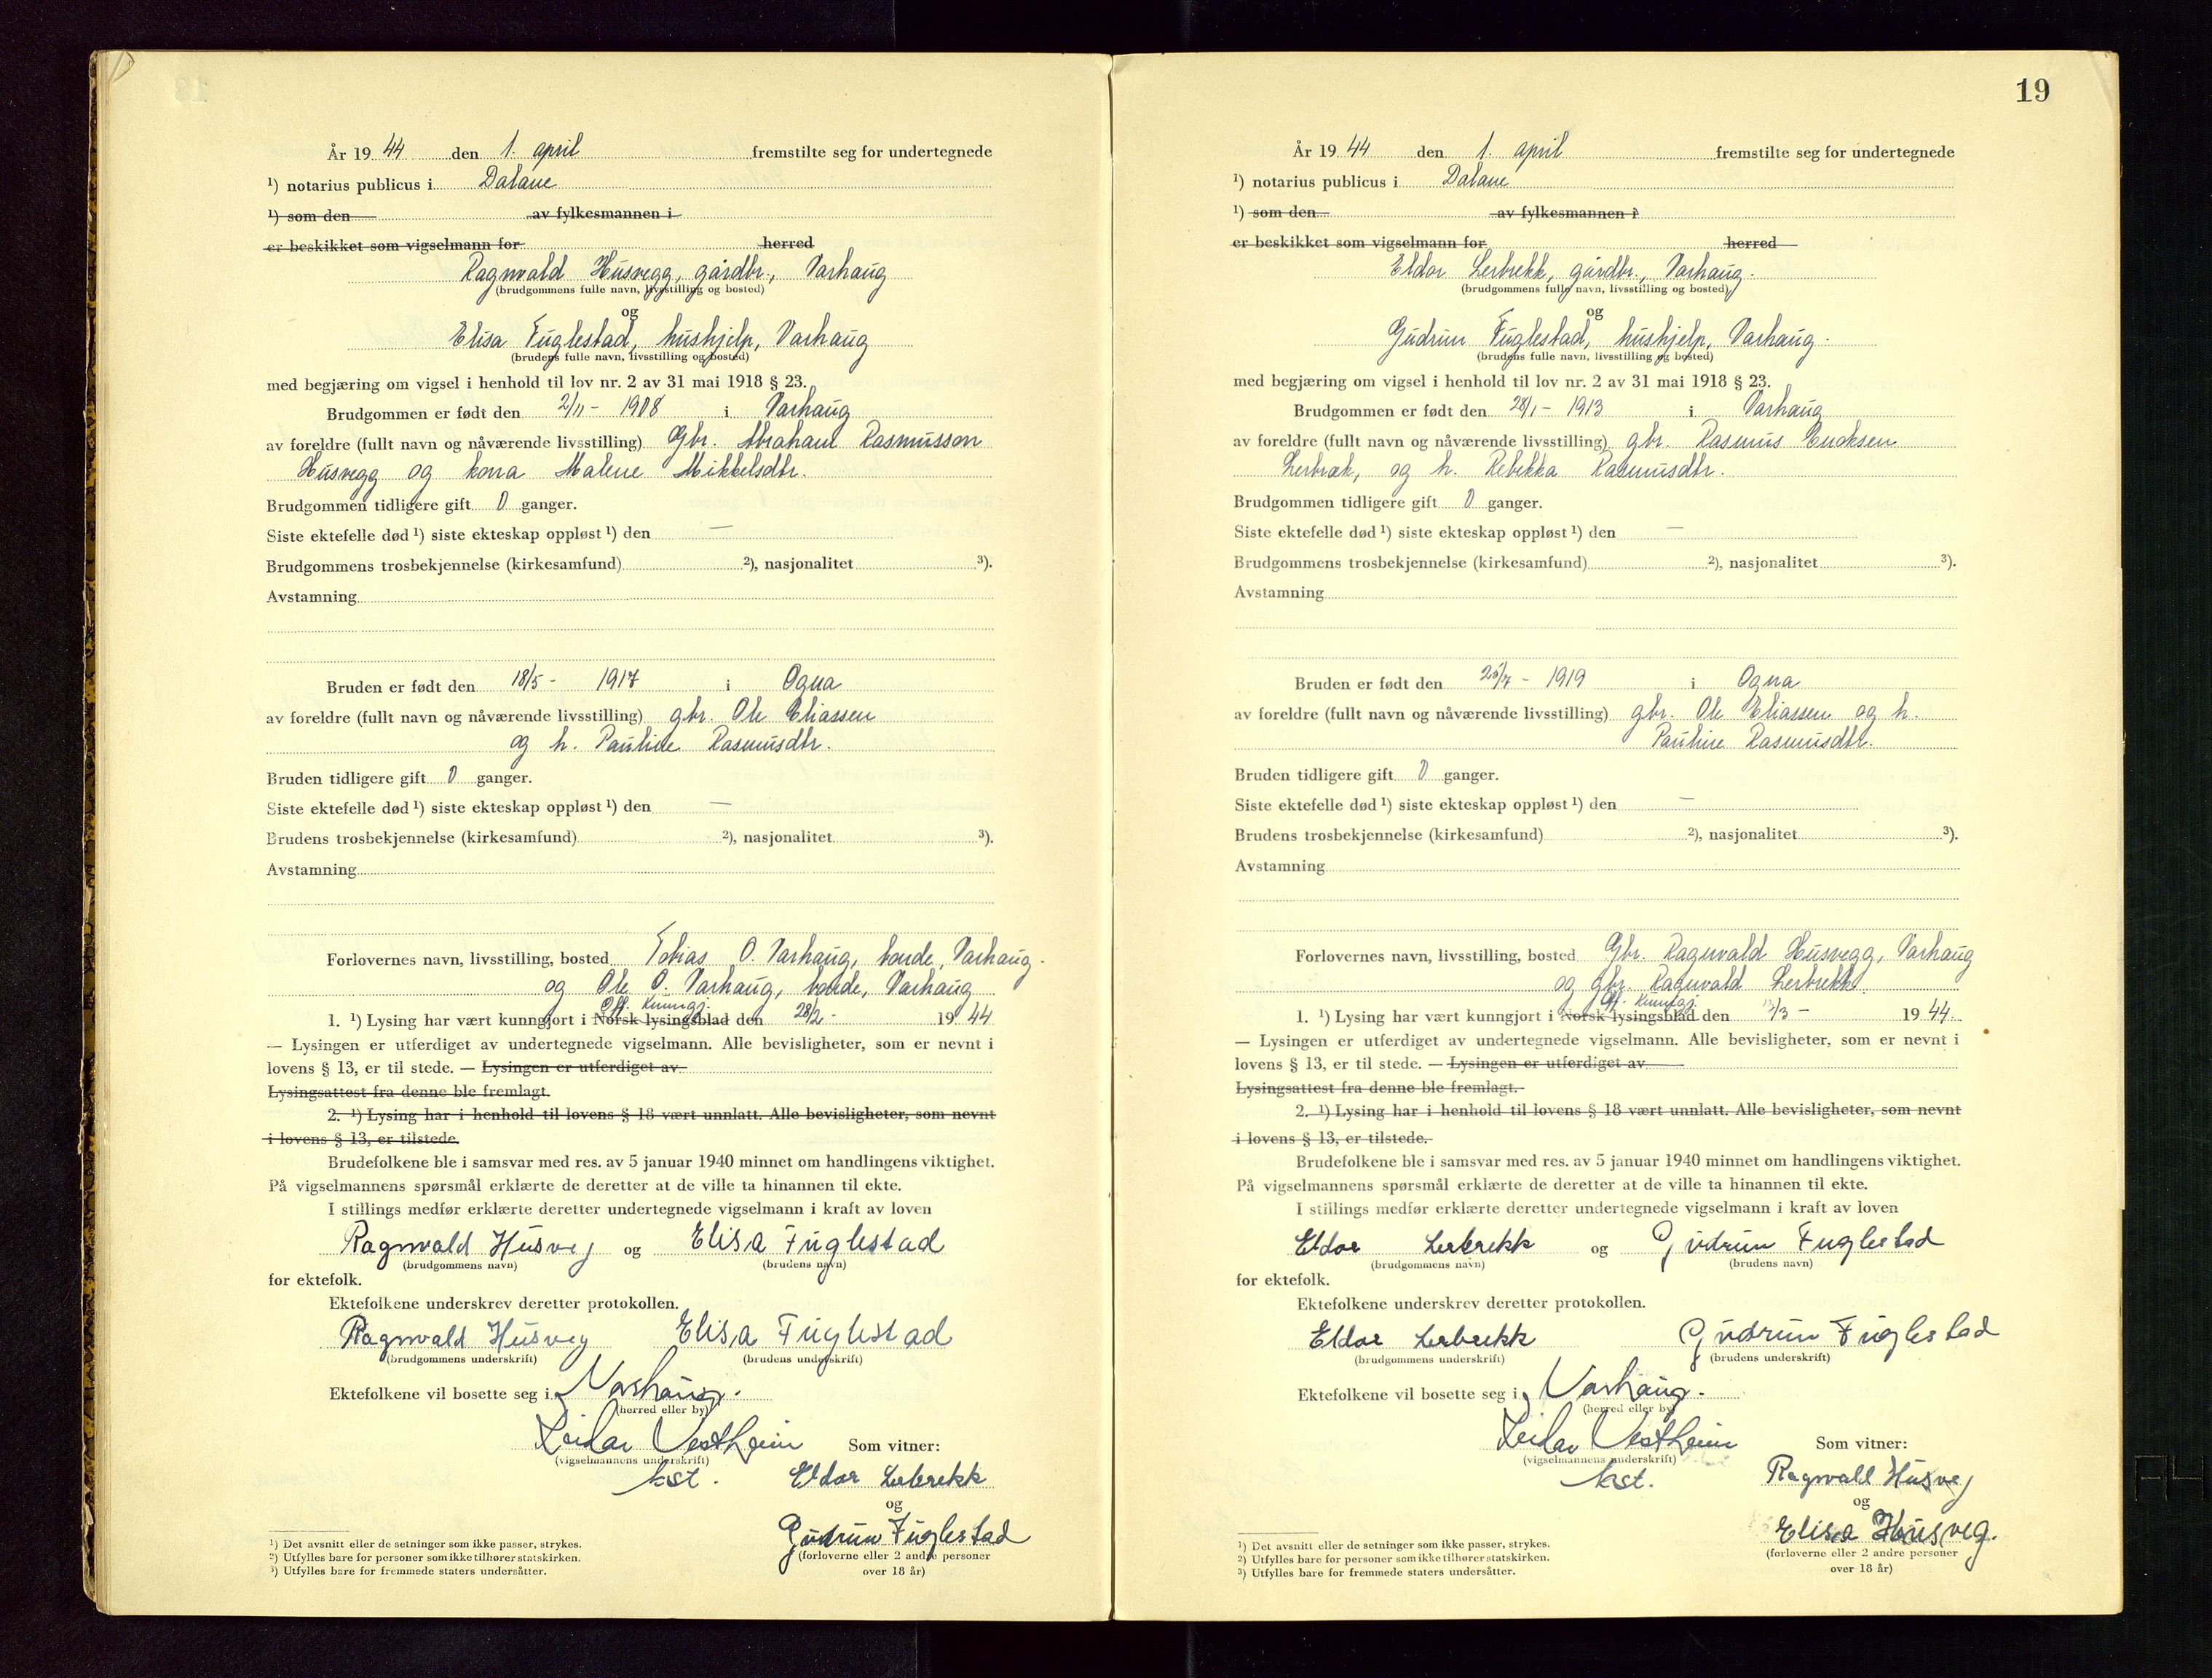 År 19 44 den 1. april fremstilte seg for undertegnede
¹) notarius publicus i Dalane
¹) som den av fylkesmannen i
er beskikket som vigselmann for herred
Ragnvald Husvegg, gårdbr., Varhaug
(brudgommens fulle navn, livsstilling og bosted)
og
Elisa Fuglestad, hushjelp, Varhaug
(brudens fulle navn, livsstilling og bosted)
med begjæring om vigsel i henhold til lov nr. 2 av 31 mai 1918 § 23.
Brudgommen er født den 2/11 - 1908 i Varhaug
av foreldre (fullt navn og nåværende livsstilling) Gbr. Abraham Rasmusson
Husvegg og kona Malene Mikkelsdtr.
Brudgommen tidligere gift 0 ganger.
Siste ektefelle død ¹) siste ekteskap oppløst ¹) den —
Brudgommens trosbekjennelse (kirkesamfund) ²), nasjonalitet ³).
Avstamning
Bruden er født den 18/5 - 1917 i Ogna
av foreldre (fullt navn og nåværende livsstilling) gbr. Ole Eliassen
og h. Pauline Rasmusdtr.
Bruden tidligere gift 0 ganger.
Siste ektefelle død ¹) siste ekteskap oppløst ¹) den —
Brudens trosbekjennelse (kirkesamfund) ²), nasjonalitet ³).
Avstamning
Forlovernes navn, livsstilling, bosted Tobias O. Varhaug, bonde, Varhaug.
og Ole O. Varhaug, bonde, Varhaug
Off. Kunngj.
1. ¹) Lysing har vært kunngjort i Norsk lysingsblad den 28/2 - 19 44
— Lysingen er utferdiget av undertegnede vigselmann. Alle bevisligheter, som er nevnt i
lovens § 13, er til stede. — Lysingen er utferdiget av
Lysingsattest fra denne ble fremlagt.
2. ¹) Lysing har i henhold til lovens § 18 vært unnlatt. Alle bevisligheter, som nevnt
i lovens § 13, er tilstede.
Brudefolkene ble i samsvar med res. av 5 januar 1940 minnet om handlingens viktighet.
På vigselmannens spørsmål erklærte de deretter at de ville ta hinannen til ekte.
I stillings medfør erklærte deretter undertegnede vigselmann i kraft av loven
Ragnvald Husveg og Elisa Fuglestad
(brudgommens navn) (brudens navn)
for ektefolk.
Ektefolkene underskrev deretter protokollen.
Ragnvald Husveg Elisa Fuglestad
(brudgommens underskrift) (brudens underskrift)
Ektefolkene vil bosette seg i Varhaug.
(herred eller by)
Leidar Vestheim Som vitner:
(vigselmannens underskrift)
kst. Eldor Lerbrekk
og
Gudrun Fuglestad
(forloverne eller 2 andre personer
over 18 år)
¹) Det avsnitt eller de setninger som ikke passer, strykes.
²) Utfylles bare for personer som ikke tilhører statskirken.
³) Utfylles bare for fremmede staters undersåtter.
19
År 19 44 den 1. april fremstilte seg for undertegnede
¹) notarius publicus i Dalane
¹) som den av fylkesmannen i
er beskikket som vigselmann for herred
Eldor Lerbrekk, gårdbr., Varhaug.
(brudgommens fulle navn, livsstilling og bosted)
og
Gudrun Fuglestad, hushjelp, Varhaug.
(brudens fulle navn, livsstilling og bosted)
med begjæring om vigsel i henhold til lov nr. 2 av 31 mai 1918 § 23.
Brudgommen er født den 28/1 - 1913 i Varhaug
av foreldre (fullt navn og nåværende livsstilling) gbr. Rasmus Endresen
Lerbræk, og h. Rebekka Rasmusdtr.
Brudgommen tidligere gift 0 ganger.
Siste ektefelle død ¹) siste ekteskap oppløst ¹) den —
Brudgommens trosbekjennelse (kirkesamfund) ²), nasjonalitet ³).
Avstamning
Bruden er født den 25/7 - 1919 i Ogna
av foreldre (fullt navn og nåværende livsstilling) gbr. Ole Eliassen og h.
Pauline Rasmusdtr.
Bruden tidligere gift 0 ganger.
Siste ektefelle død ¹) siste ekteskap oppløst ¹) den —
Brudens trosbekjennelse (kirkesamfund) ²), nasjonalitet ³).
Avstamning
Forlovernes navn, livsstilling, bosted Gbr. Ragnvald Husvegg, Varhaug
og gbr. Ragnvald Lerbrekk.
Off. Kunngj.
1. ¹) Lysing har vært kunngjort i Norsk lysingsblad den /3 - 19 44.
— Lysingen er utferdiget av undertegnede vigselmann. Alle bevisligheter, som er nevnt i
lovens § 13, er til stede. — Lysingen er utferdiget av
Lysingsattest fra denne ble fremlagt.
2. ¹) Lysing har i henhold til lovens § 18 vært unnlatt. Alle bevisligheter, som nevnt
i lovens § 13, er tilstede.
Brudefolkene ble i samsvar med res. av 5 januar 1940 minnet om handlingens viktighet.
På vigselmannens spørsmål erklærte de deretter at de ville ta hinannen til ekte.
I stillings medfør erklærte deretter undertegnede vigselmann i kraft av loven
Eldor Lerbrekk og Gudrun Fuglestad
(brudgommens navn) (brudens navn)
for ektefolk.
Ektefolkene underskrev deretter protokollen.
Eldor Lerbrekk Gudrun Fuglestad
(brudgommens underskrift) (brudens underskrift)
Ektefolkene vil bosette seg i Varhaug.
(herred eller by)
Leidar Vestheim Som vitner:
(vigselmannens underskrift)
kst. Ragnvald Husveg
og
Elisa Husveg.
(forloverne eller 2 andre personer
over 18 år)
¹) Det avsnitt eller de setninger som ikke passer, strykes.
²) Utfylles bare for personer som ikke tilhører statskirken.
³) Utfylles bare for fremmede staters undersåtter.